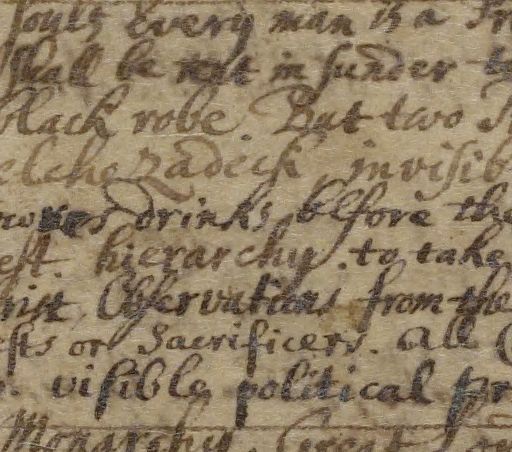 souls every man is a Pr
shall be rent in sunder
black robe. But two
elchezadeck, invisib
drinks before the
est. hierarchy. to take
rist, Observations from the
ests or Sacrificers. All
visible political pr
Monarchy. Great